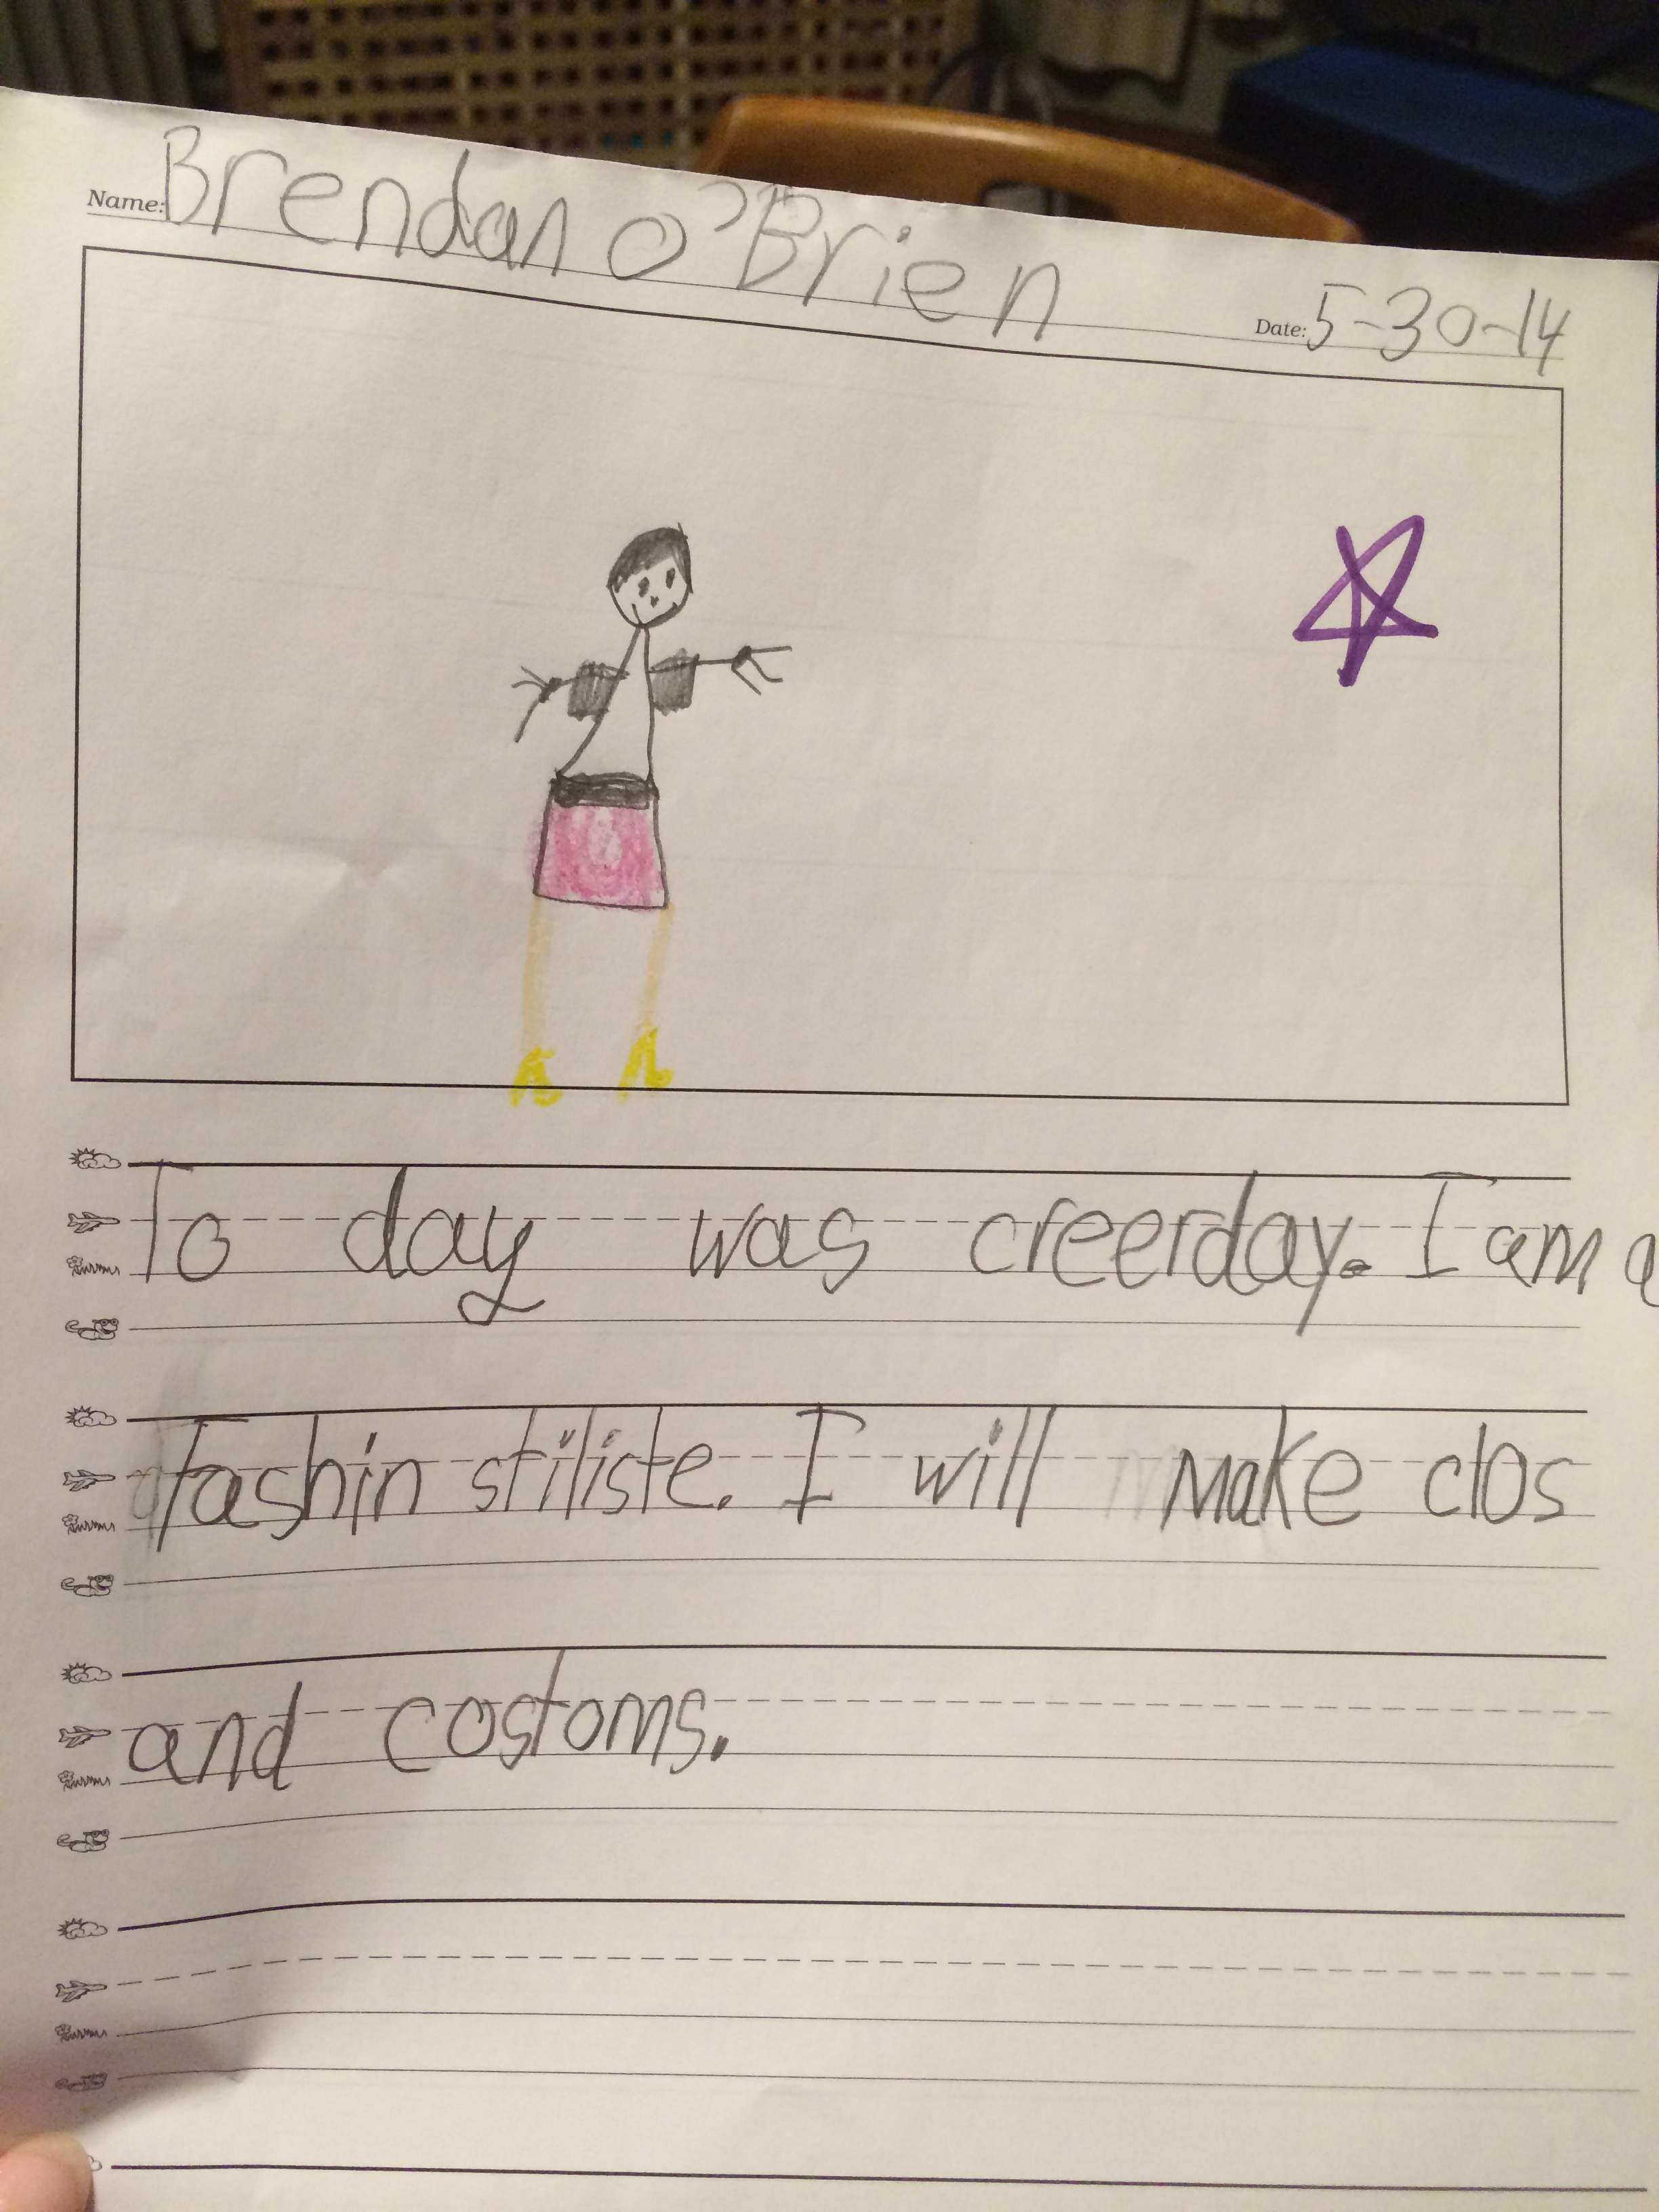 Name: Brendan O'Brien
Date: 5-30-14
To day was creerday. I am a
fashin stiliste. I will make clos
and costoms.